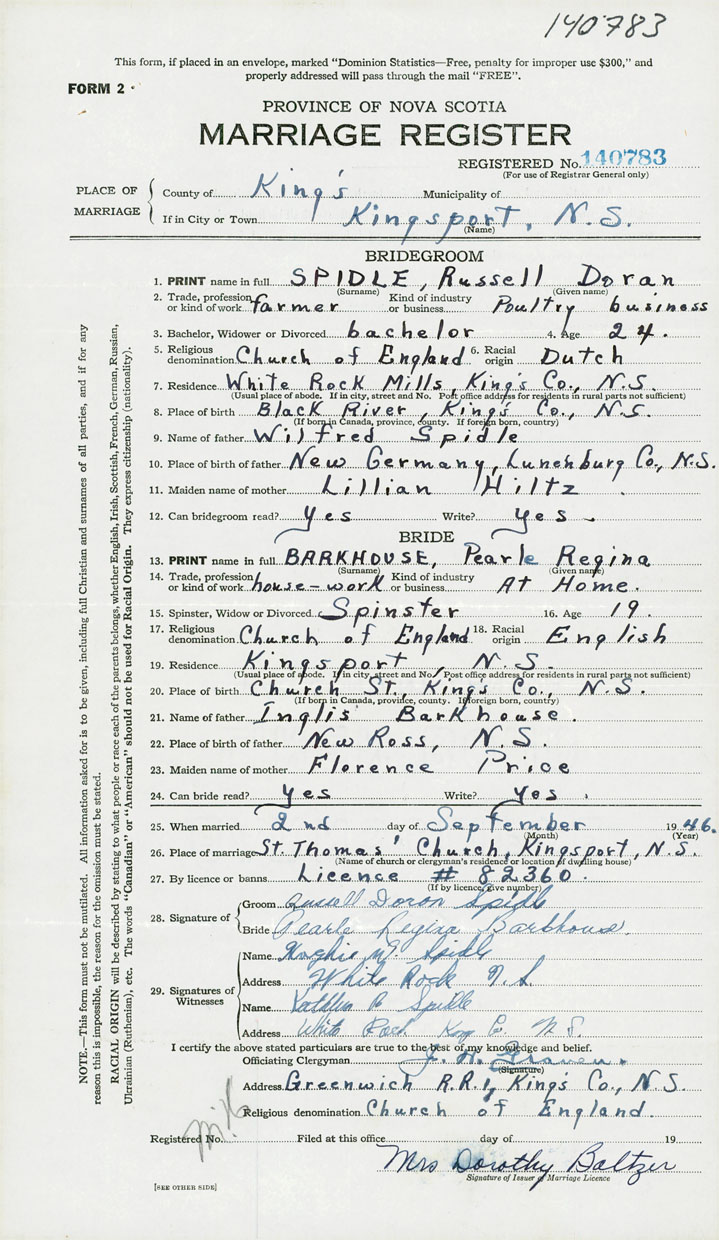 140783
This form, if placed in an envelope, marked “Dominion Statistics—Free, penalty for improper use $300,” and
properly addressed will pass through the mail “FREE”.
FORM 2
PROVINCE OF NOVA SCOTIA
MARRIAGE REGISTER
REGISTERED No. 140783
(For use of Registrar General only)
PLACE OF MARRIAGE
County of King's Municipality of
If in City or Town Kingsport, N.S.
(Name)
BRIDEGROOM
1. PRINT name in full SPIDLE, Russell Doran
(Surname) (Given name)
2. Trade, profession or kind of work farmer Kind of industry or business Poultry business
3. Bachelor, Widower or Divorced bachelor 4. Age 24.
5. Religious denomination Church of England 6. Racial origin Dutch
7. Residence White Rock Mills, King's Co., N.S.
(Usual place of abode. If in city, street and No. Post office address for residents in rural parts not sufficient)
8. Place of birth Black River, King's Co., N.S.
(If born in Canada, province, county. If foreign born, country)
9. Name of father Wilfred Spidle
10. Place of birth of father New Germany, Lunenburg Co., N.S.
11. Maiden name of mother Lillian Hiltz
12. Can bridegroom read? yes Write? yes
BRIDE
13. PRINT name in full BARKHOUSE, Pearle Regina
(Surname) (Given name)
14. Trade, profession or kind of work house-work Kind of industry or business At Home.
15. Spinster, Widow or Divorced Spinster 16. Age 19.
17. Religious denomination Church of England 18. Racial origin English
19. Residence Kingsport, N.S.
(Usual place of abode. If in city, street and No. Post office address for residents in rural parts not sufficient)
20. Place of birth Church St., King's Co., N.S.
(If born in Canada, province, county. If foreign born, country)
21. Name of father Inglis Barkhouse.
22. Place of birth of father New Ross, N.S.
23. Maiden name of mother Florence Price
24. Can bride read? yes Write? yes
25. When married 2nd day of September 1946.
(Month) (Year)
26. Place of marriage St. Thomas' Church, Kingsport, N.S.
(Name of church or clergyman's residence or location if dwelling house)
27. By licence or banns Licence # 82360.
(If by licence, give number)
28. Signature of
Groom Russell Doran Spidle
Bride Pearle Regina Barkhouse.
29. Signatures of Witnesses
Name Spidle
Address White Rock N.S.
Name Spidle
Address White Rock King Co. N.S.
I certify the above stated particulars are true to the best of my knowledge and belief.
Officiating Clergyman
(Signature)
Address Greenwich R.R.1, King's Co., N.S.
Religious denomination Church of England.
Registered No. Filed at this office day of 19
Mrs Dorothy Baltzer
Signature of Issuer of Marriage Licence
[SEE OTHER SIDE]
NOTE.—This form must not be mutilated. All information asked for is to be given, including full Christian and surnames of all parties, and if for any
reason this is impossible, the reason for the omission must be stated.
RACIAL ORIGIN will be described by stating to what people or race each of the parents belongs, whether English, Irish, Scottish, French, German, Russian,
Ukrainian (Ruthenian), etc. The words “Canadian” or “American” should not be used for Racial Origin. They express citizenship (nationality).